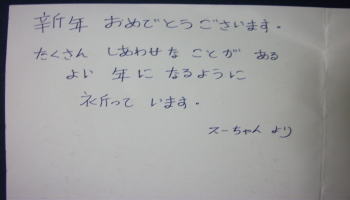 新年 おめでとうございます.
たくさん しあわせな ことが ある
よい 年に なるように
祈って います.
スーちゃん より